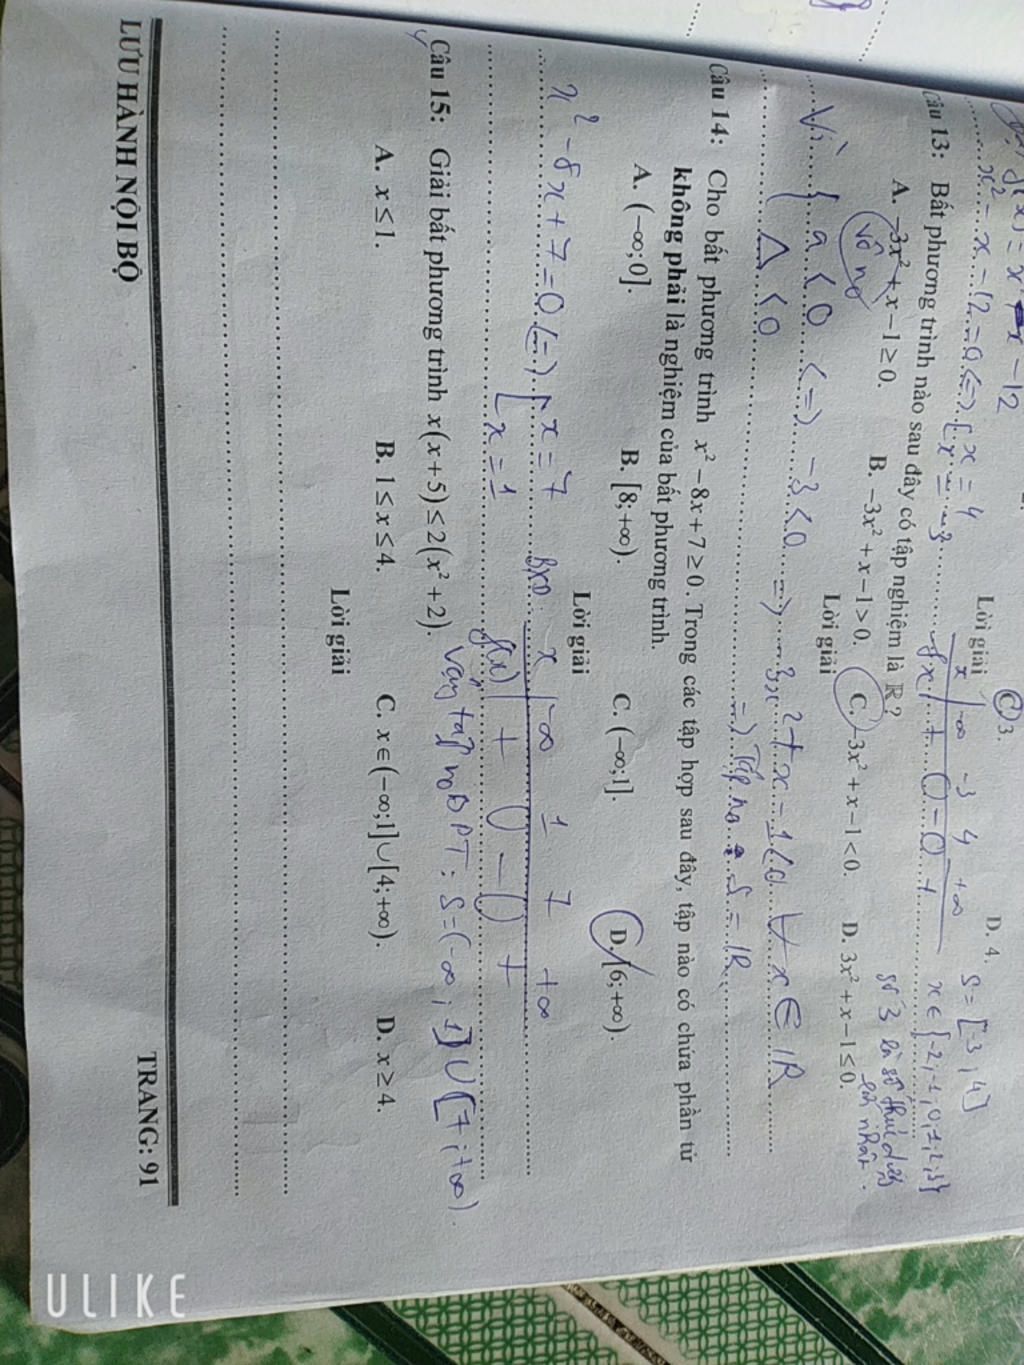 x² - x - 12
Lời giải
C 3.
D. 4.
x² - x - 12 = 0 <=> [ x = 4
x = -3
x | -∞ -3 4 +∞
fx | + 0 - 0 +
S = [-3; 4]
x ∈ {-2, -1, 0, 1, 2, 3}
số 3 là số
Câu 13: Bất phương trình nào sau đây có tập nghiệm là ℝ?
A. -3x² + x - 1 ≥ 0. B. -3x² + x - 1 > 0. C. -3x² + x - 1 < 0. D. 3x² + x - 1 ≤ 0.
Vô no
Lời giải
Vì { a < 0 <=> -3 < 0 => -3x² + x - 1 < 0 ∀x ∈ IR
Δ < 0 => Tập no S = IR
Câu 14: Cho bất phương trình x² - 8x + 7 ≥ 0. Trong các tập hợp sau đây, tập nào có chứa phần tử
không phải là nghiệm của bất phương trình.
A. (-∞;0]. B. [8;+∞). C. (-∞;1]. D. [6;+∞).
Lời giải
x² - 8x + 7 = 0 <=> [ x = 7
x = 1
BXD: x | -∞ 1 7 +∞
f(x) | + 0 - 0 +
Vậy tập no BPT: S = (-∞; 1] ∪ [7; +∞).
Câu 15: Giải bất phương trình x(x+5) ≤ 2(x²+2).
A. x ≤ 1. B. 1 ≤ x ≤ 4. C. x ∈ (-∞;1] ∪ [4;+∞). D. x ≥ 4.
Lời giải
LƯU HÀNH NỘI BỘ TRANG: 91
ULIKE